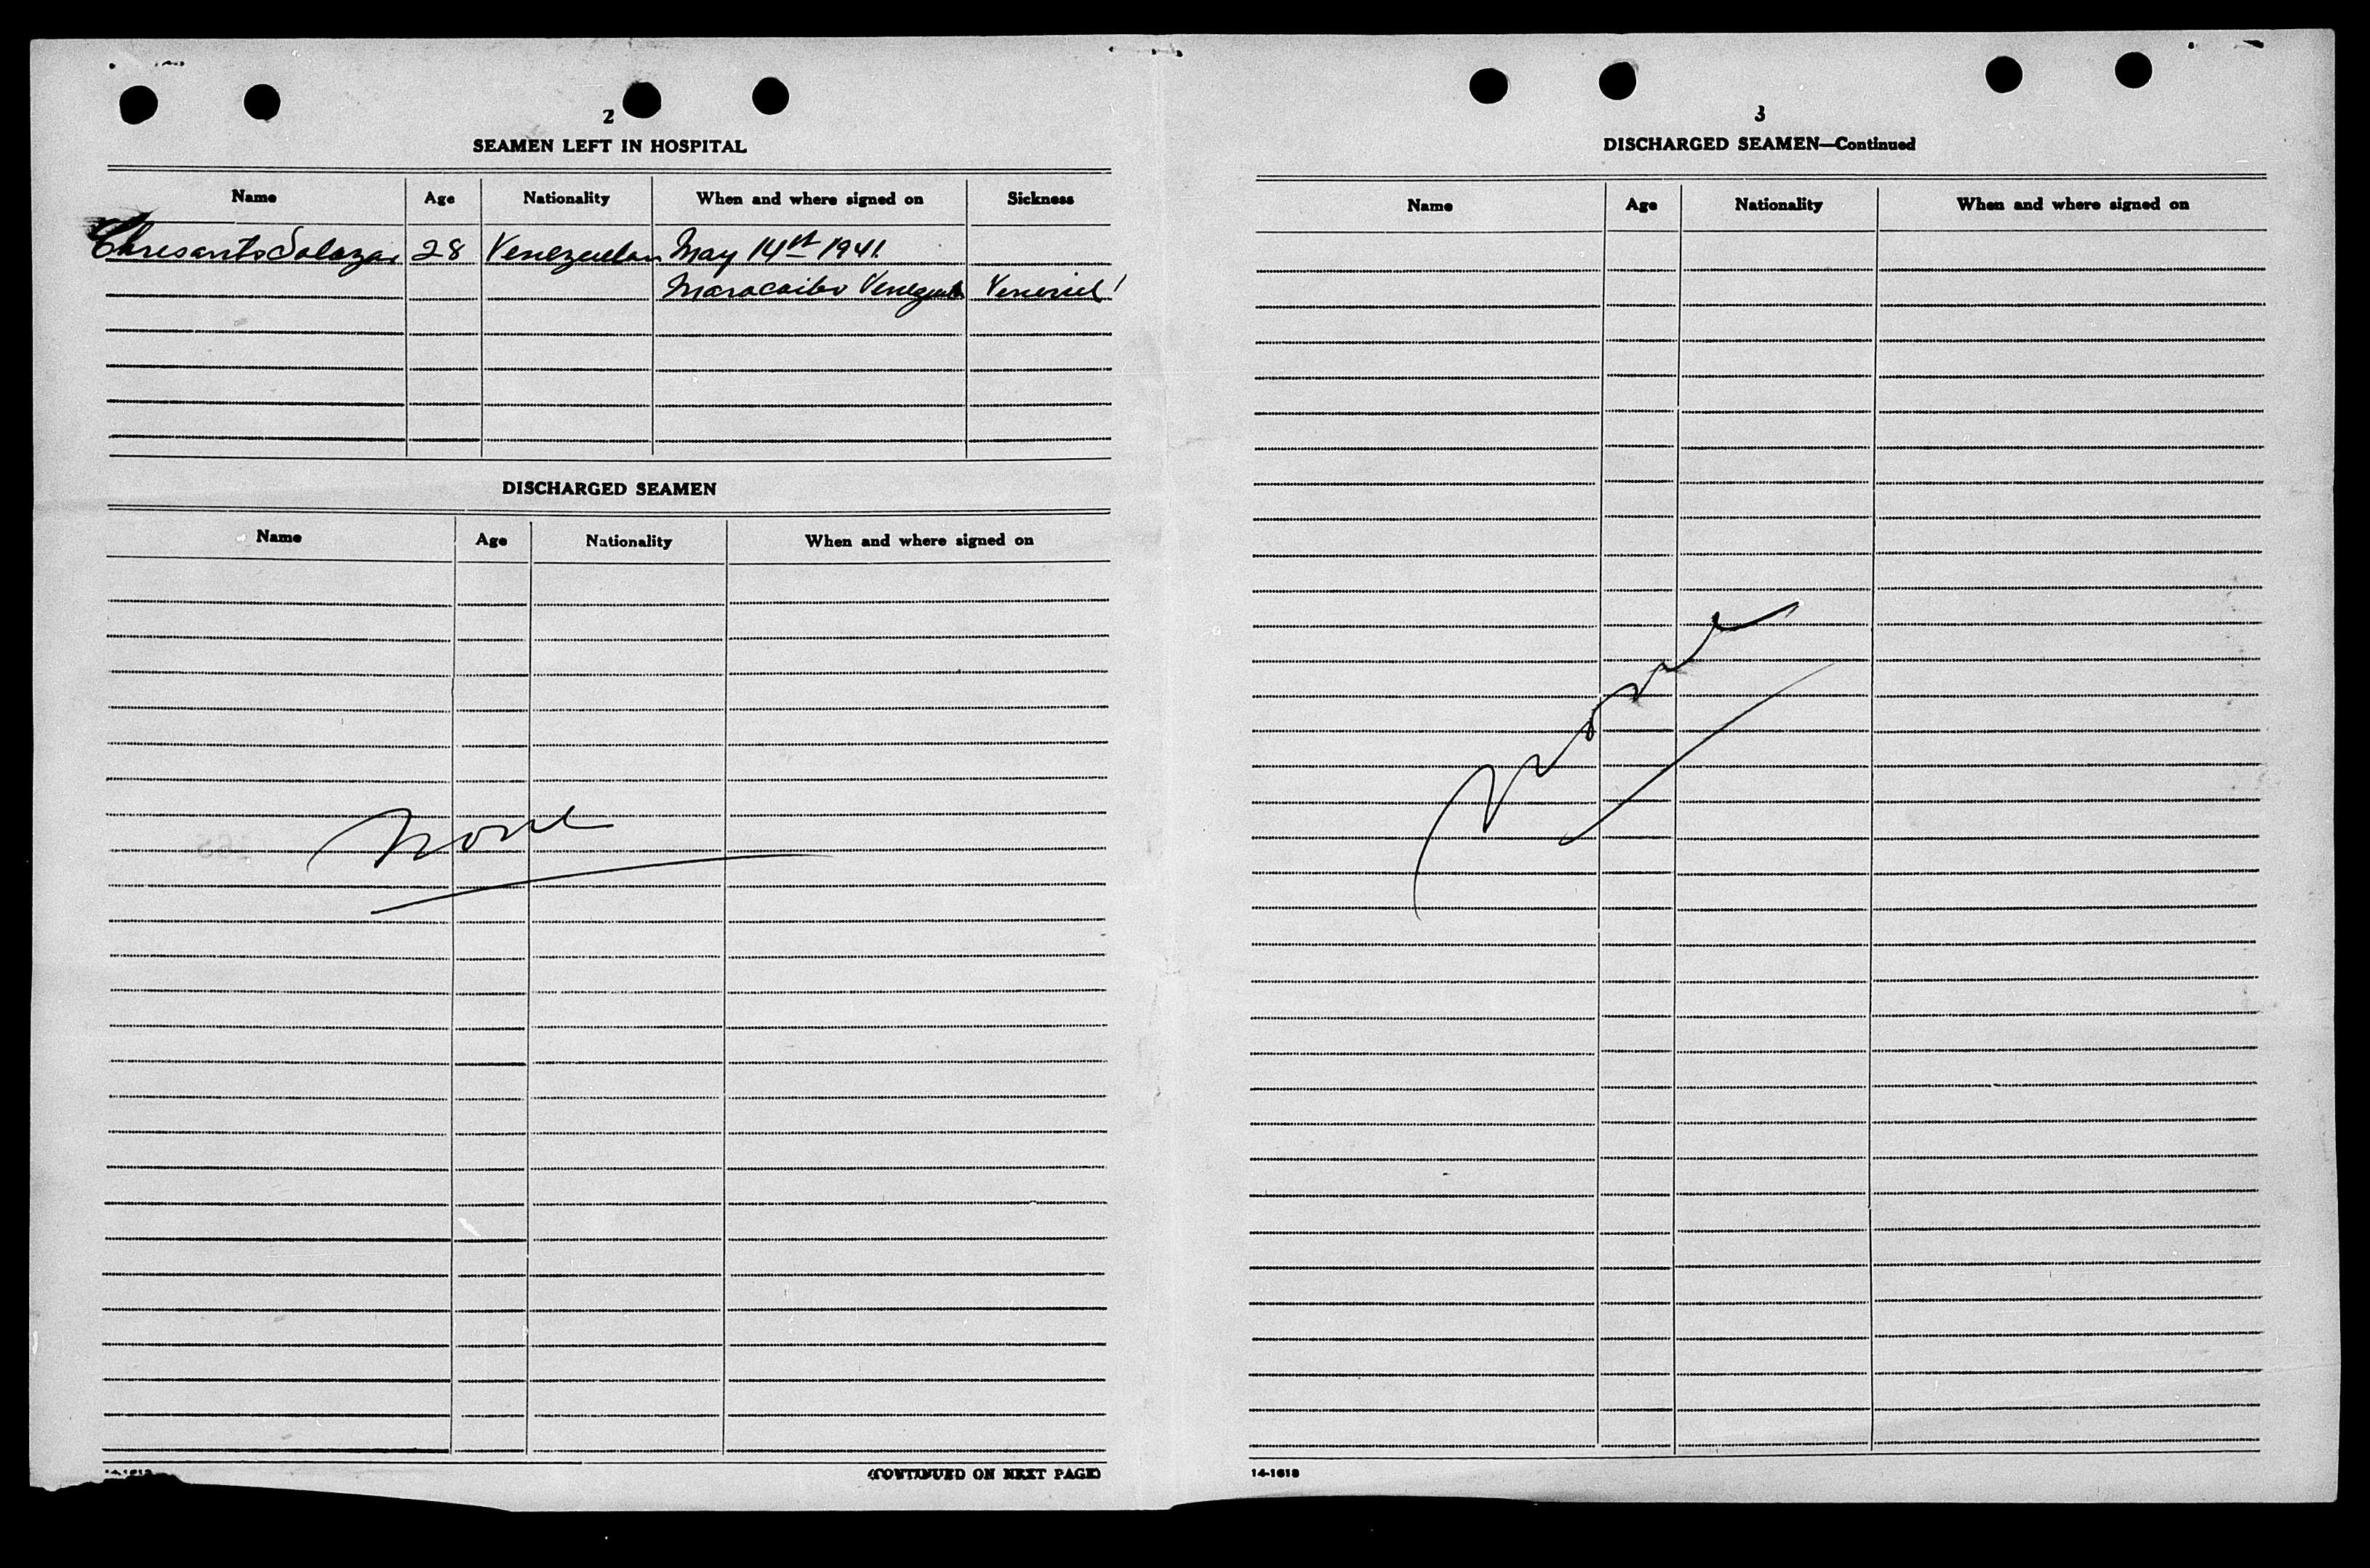 2
SEAMEN LEFT IN HOSPITAL
Name Age Nationality When and where signed on Sickness
Chresanto Salazar 28 Venezuelan May 14st 1941.
Maracaibo Venezuela Veneriel
DISCHARGED SEAMEN
Name Age Nationality When and where signed on
None
(CONTINUED ON NEXT PAGE)
3
DISCHARGED SEAMEN—Continued
Name Age Nationality When and where signed on
None
14-1618